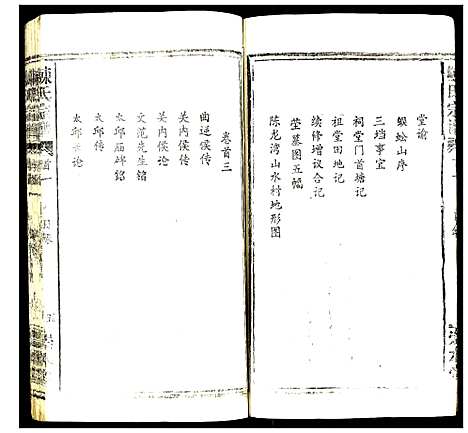 堂谕
蜈蚣山序
三垱事宜
祠堂门首塘记
祖堂田地记
续修增议合记
茔墓图五幅
陈龙湾山水村地形图
卷首三
曲逆侯传
关内侯传
关内侯论
文范先生铭
太邱庙碑铭
太邱传
太邱论
陈氏宗谱
卷首
目录